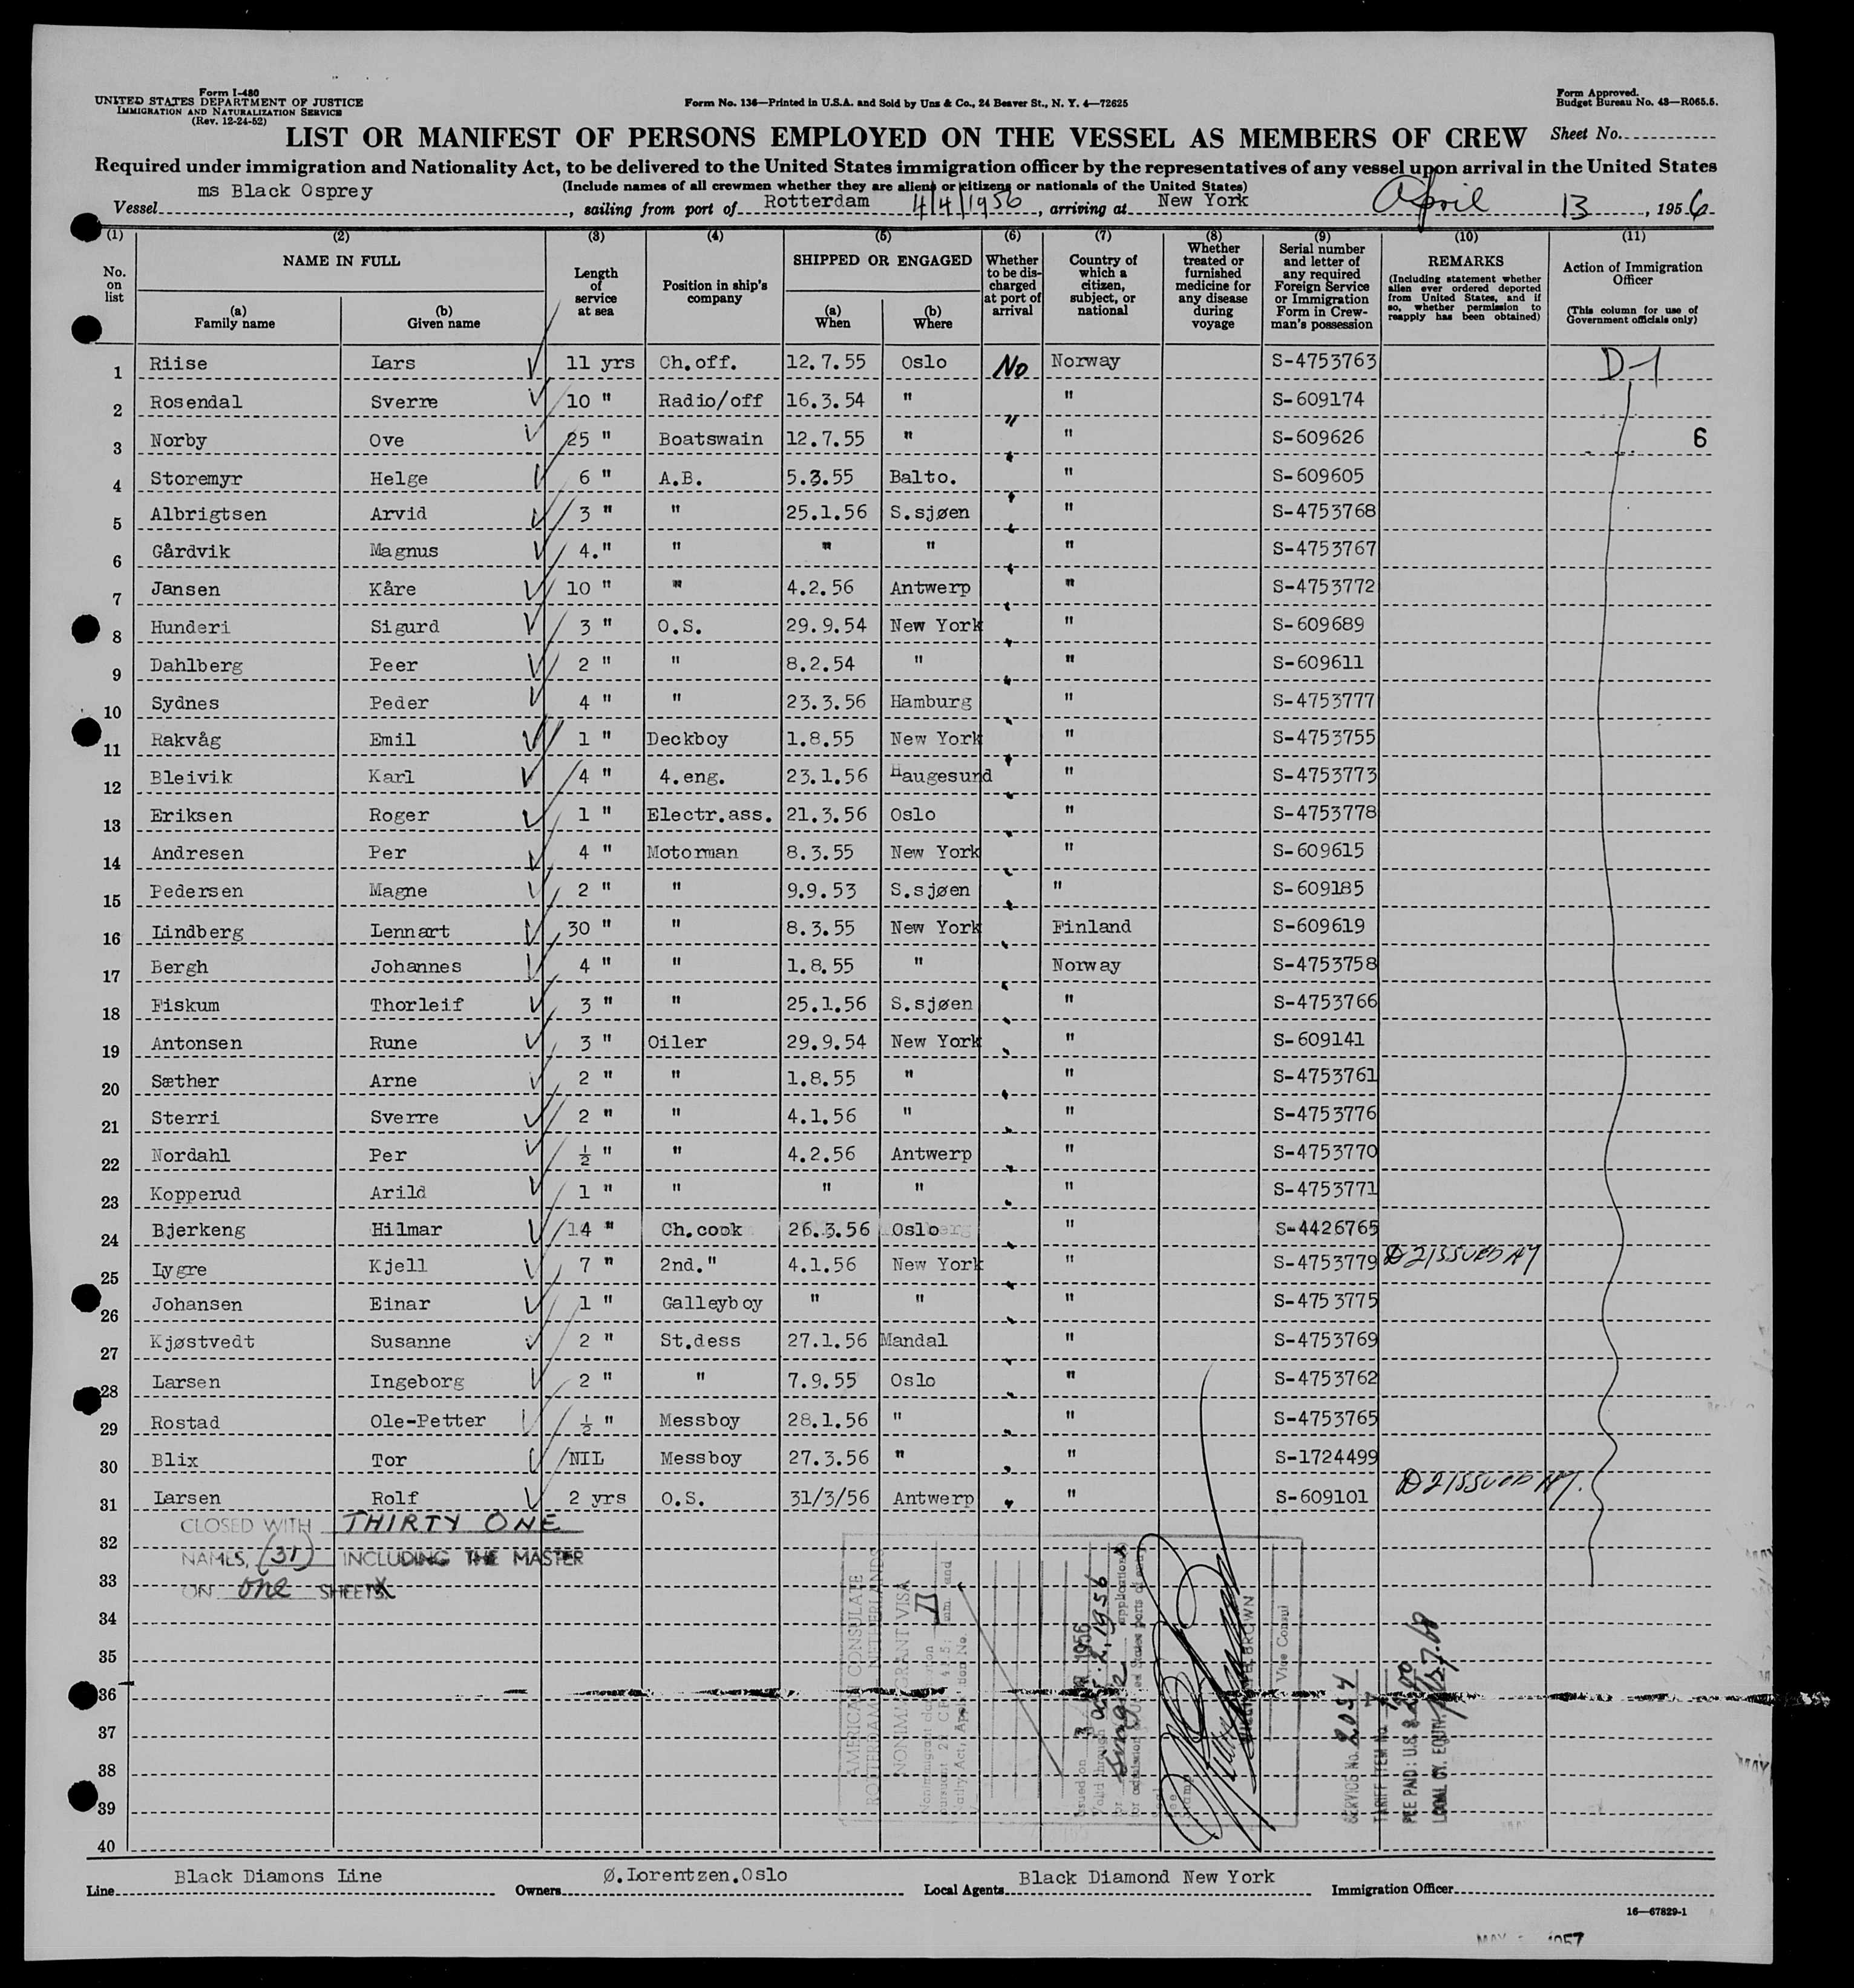 Form I-480
UNITED STATES DEPARTMENT OF JUSTICE
IMMIGRATION AND NATURALIZATION SERVICE
(Rev. 12-24-52)
Form No. 136—Printed in U.S.A. and Sold by Unz & Co., 24 Beaver St., N. Y. 4—72625
Form Approved.
Budget Bureau No. 43—R065.5.
LIST OR MANIFEST OF PERSONS EMPLOYED ON THE VESSEL AS MEMBERS OF CREW Sheet No.
Required under immigration and Nationality Act, to be delivered to the United States immigration officer by the representatives of any vessel upon arrival in the United States
(Include names of all crewmen whether they are aliens or citizens or nationals of the United States)
Vessel ms Black Osprey, sailing from port of Rotterdam 4/4/1956, arriving at New York April 13, 1956
(1) (2) (3) (4) (5) (6) (7) (8) (9) (10) (11)
No. on list
NAME IN FULL
(a) Family name
(b) Given name
Length of service at sea
Position in ship's company
SHIPPED OR ENGAGED
(a) When
(b) Where
Whether to be discharged at port of arrival
Country of which a citizen, subject, or national
Whether treated or furnished medicine for any disease during voyage
Serial number and letter of any required Foreign Service or Immigration Form in Crewman's possession
REMARKS
(Including statement whether alien ever ordered deported from United States, and if so, whether permission to reapply has been obtained)
Action of Immigration Officer
(This column for use of Government officials only)
1 Riise Lars 11 yrs Ch.off. 12.7.55 Oslo No Norway S-4753763 D-1
2 Rosendal Sverre 10 " Radio/off 16.3.54 " " " S-609174
3 Norby Ove 25 " Boatswain 12.7.55 " " " S-609626 6
4 Storemyr Helge 6 " A.B. 5.3.55 Balto. " " S-609605
5 Albrigtsen Arvid 3 " " 25.1.56 S.sjøen " " S-4753768
6 Gårdvik Magnus 4." " " " " " S-4753767
7 Jansen Kåre 10 " " 4.2.56 Antwerp " " S-4753772
8 Hunderi Sigurd 3 " O.S. 29.9.54 New York " " S-609689
9 Dahlberg Peer 2 " " 8.2.54 " " " S-609611
10 Sydnes Peder 4 " " 23.3.56 Hamburg " " S-4753777
11 Rakvåg Emil 1 " Deckboy 1.8.55 New York " " S-4753755
12 Bleivik Karl 4 " 4.eng. 23.1.56 Haugesund " " S-4753773
13 Eriksen Roger 1 " Electr.ass. 21.3.56 Oslo " " S-4753778
14 Andresen Per 4 " Motorman 8.3.55 New York " " S-609615
15 Pedersen Magne 2 " " 9.9.53 S.sjøen " " S-609185
16 Lindberg Lennart 30 " " 8.3.55 New York " Finland S-609619
17 Bergh Johannes 4 " " 1.8.55 " " Norway S-4753758
18 Fiskum Thorleif 3 " " 25.1.56 S.sjøen " " S-4753766
19 Antonsen Rune 3 " Oiler 29.9.54 New York " " S-609141
20 Sæther Arne 2 " " 1.8.55 " " " S-4753761
21 Sterri Sverre 2 " " 4.1.56 " " " S-4753776
22 Nordahl Per ½ " " 4.2.56 Antwerp " " S-4753770
23 Kopperud Arild 1 " " " " " " S-4753771
24 Bjerkeng Hilmar 14 " Ch.cook 26.3.56 Oslo " S-4426765
25 Lygre Kjell 7 " 2nd." 4.1.56 New York " " S-4753779 D2 ISSUED NY
26 Johansen Einar 1 " Galleyboy " " " " S-4753775
27 Kjøstvedt Susanne 2 " St.dess 27.1.56 Mandal " S-4753769
28 Larsen Ingeborg 2 " " 7.9.55 Oslo " " S-4753762
29 Rostad Ole-Petter ½ " Messboy 28.1.56 " " " S-4753765
30 Blix Tor NIL Messboy 27.3.56 " " " S-1724499
31 Larsen Rolf 2 yrs O.S. 31/3/56 Antwerp " " S-609101 D2 ISSUED NY.
CLOSED WITH THIRTY ONE
NAMES, (31) INCLUDING THE MASTER
ON one SHEETS
32
33
34
35
36
37
38
39
40
AMERICAN CONSULATE
ROTTERDAM, NETHERLANDS
NONIMMIGRANT VISA
Valid through Oct. 2, 1956
for Single application
BROWN
Vice Consul
SERVICE No. 2054
TARIFF ITEM No. 7
FEE PAID: U.S. $ 2.00
LOCAL CY. EQUIV.
Line Black Diamons Line Owners Ø.Lorentzen.Oslo Local Agents Black Diamond New York Immigration Officer
16—67829-1